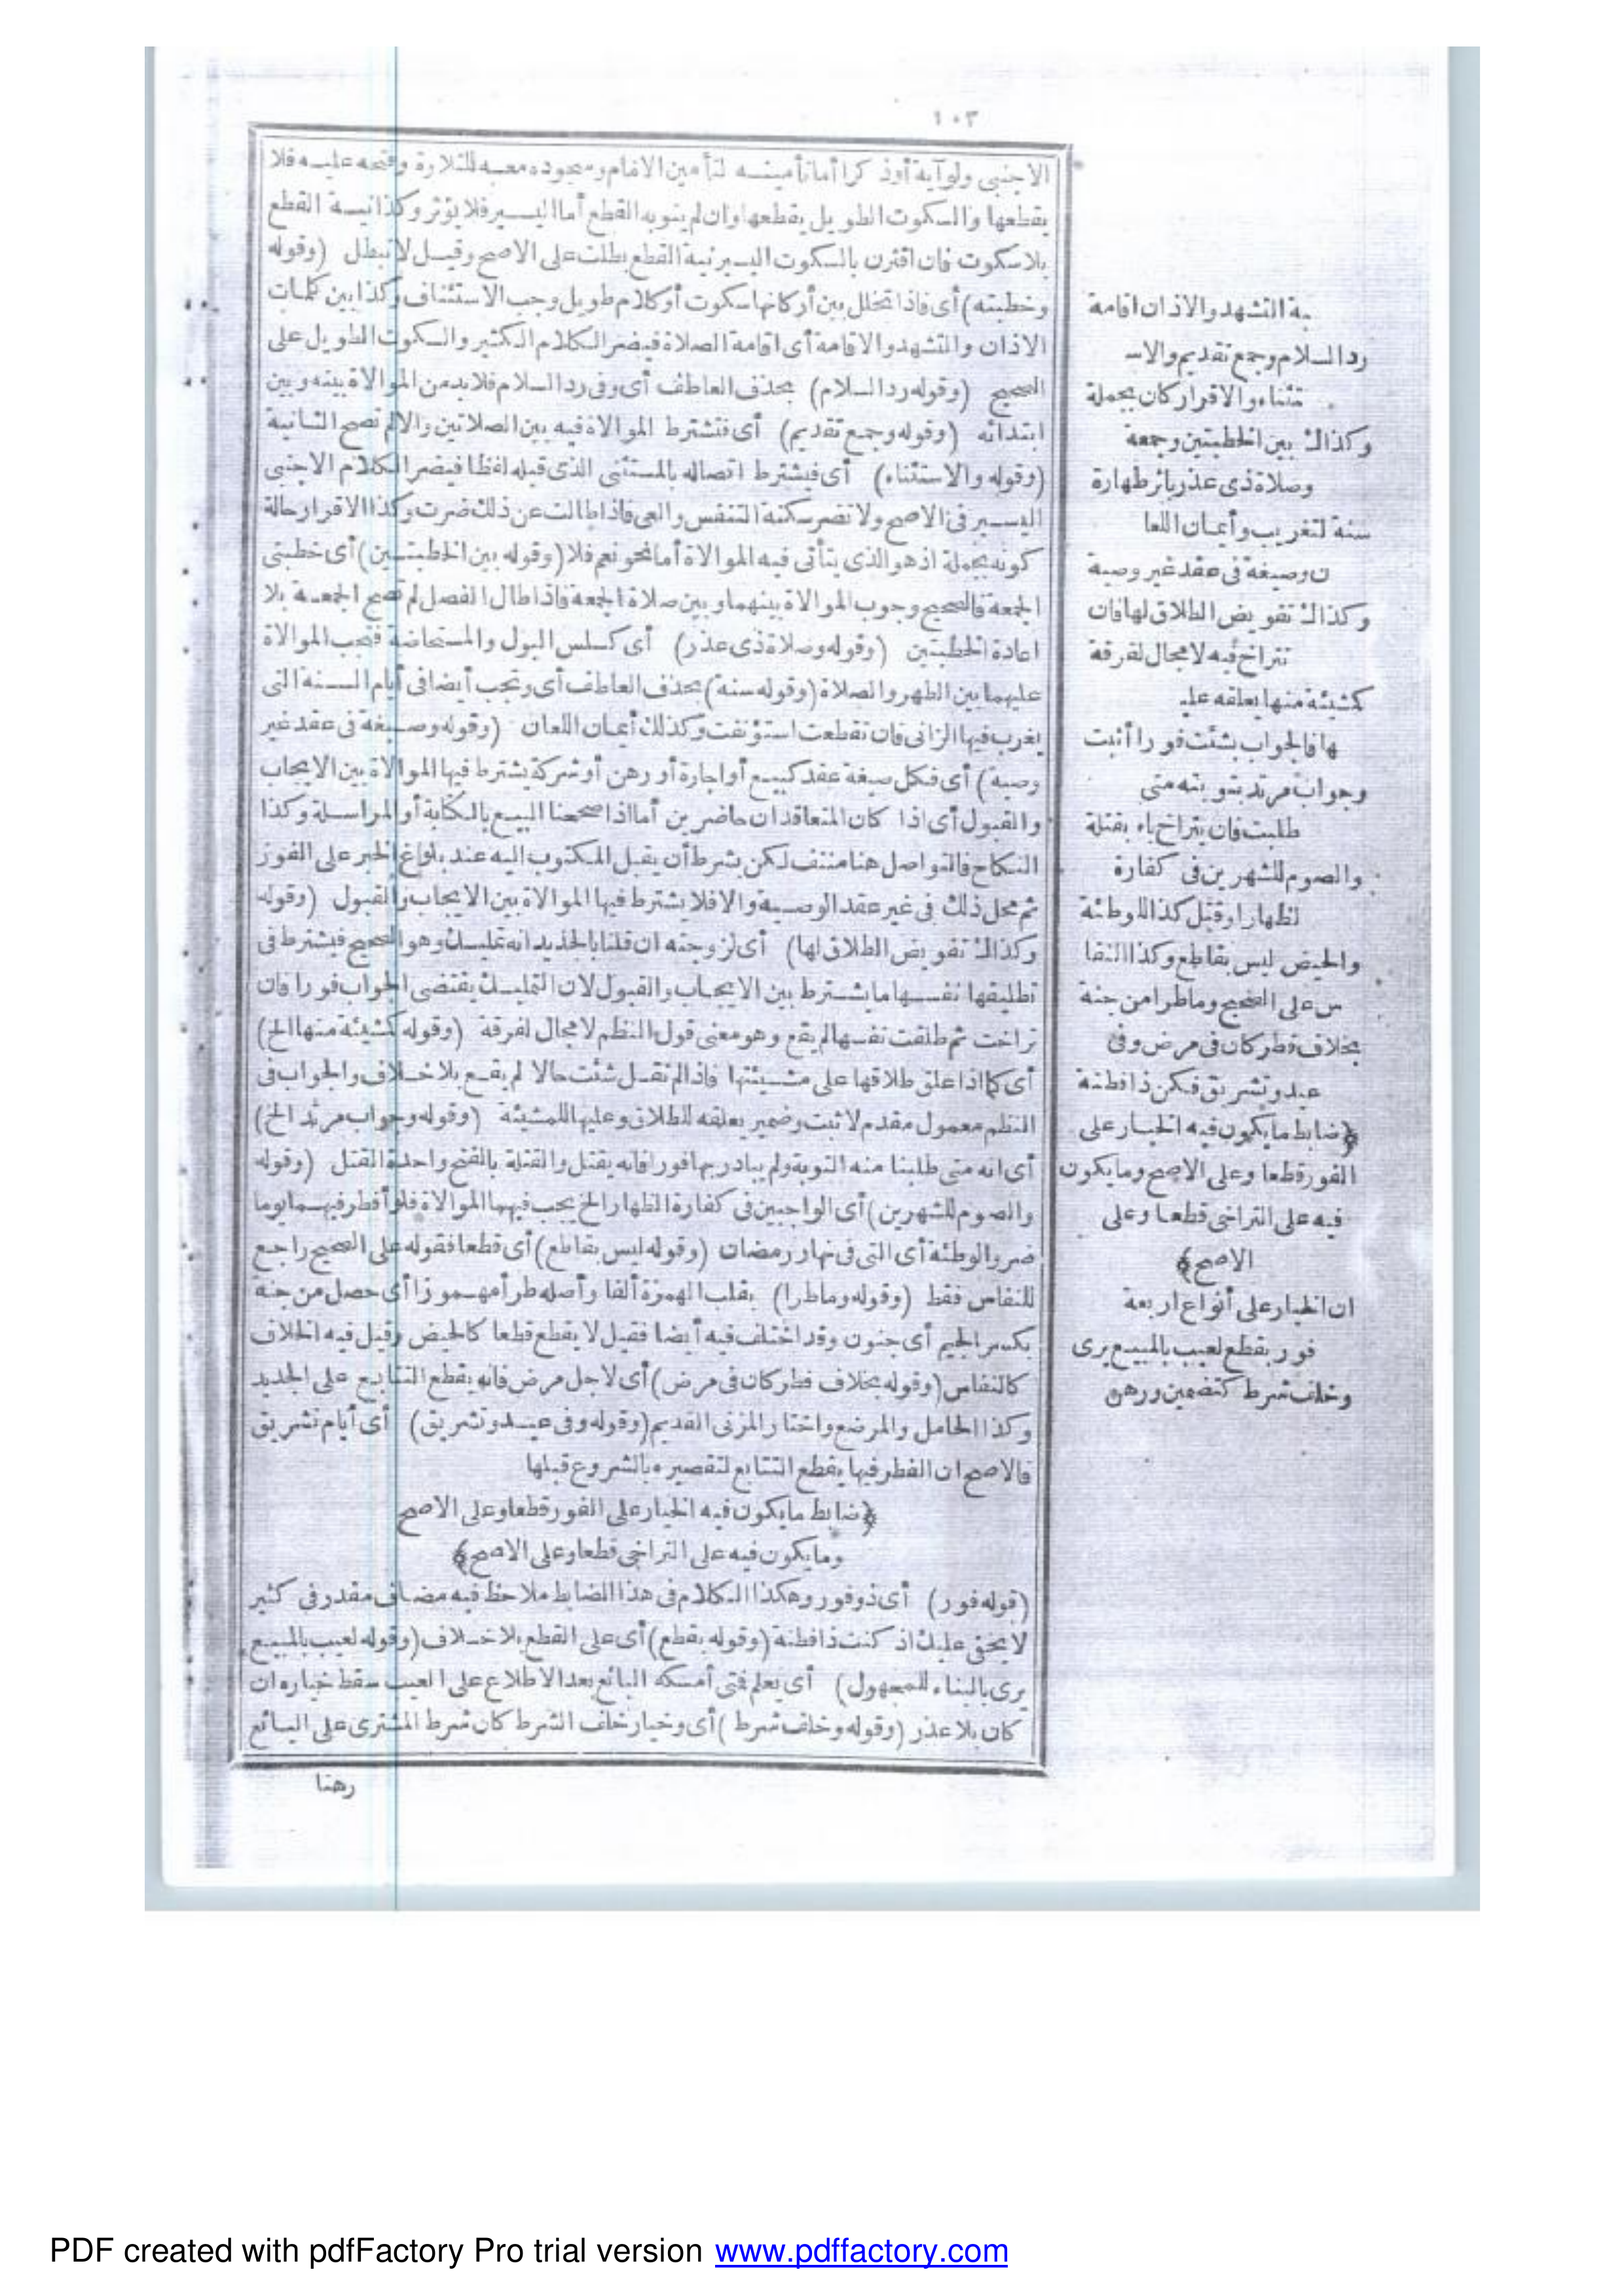 ١٠٣
الاجنبى ولو آية أو ذكرا أما تأمينه لتأمين الامام وسجوده معه للتلاوة وفتحه عليه فلا
يقطعها والسكوت الطويل يقطعها وان لم ينو به القطع أما اليسير فلا يؤثر وكذا نية القطع
بلا سكوت فان اقترن بالسكوت اليسير نية القطع بطلت على الاصح وقيل لا تبطل (وقوله
وخطبته) أى فاذا تخلل بين أركانها سكوت أو كلام طويل وجب الاستئناف وكذا بين كلمات
الاذان والتشهد والاقامة أى اقامة الصلاة فيضر الكلام الكثير والسكوت الطويل على
الصحيح (وقوله رد السلام) بحذف العاطف أى وفى رد السلام فلا بد من الموالاة بينه وبين
ابتدائه (وقوله وجمع تقديم) أى فتشترط الموالاة فيه بين الصلاتين والا لم تصح الثانية
(وقوله والاستثناء) أى فيشترط اتصاله بالمستثنى الذى قبله لفظا فيضر الكلام الاجنبى
اليسير فى الاصح ولا تضر سكتة التنفس والعى فاذا طالت عن ذلك ضرت وكذا الاقرار حالة
كونه بجملة اذ هو الذى يتأتى فيه الموالاة أما نحو نعم فلا (وقوله بين الخطبتين) أى خطبتى
الجمعة فالصحيح وجوب الموالاة بينهما وبين صلاة الجمعة فاذا طال الفصل لم تصح الجمعة بلا
اعادة الخطبتين (وقوله وصلاة ذى عذر) أى كسلس البول والمستحاضة فتجب الموالاة
عليهما بين الطهر والصلاة (وقوله سنة) بحذف العاطف أى وتجب أيضا فى أيام السنة التى
يغرب فيها الزانى فان تقطعت استؤنفت وكذلك أيمان اللعان (وقوله وصيغة فى عقد غير
وصية) أى فكل صيغة عقد كبيع أو اجارة أو رهن أو شركة يشترط فيها الموالاة بين الايجاب
والقبول أى اذا كان المتعاقدان حاضرين أما اذا صححنا البيع بالكتابة أو المراسلة وكذا
النكاح فالتواصل هنا منتف لكن بشرط أن يقبل المكتوب اليه عند بلوغ الخبر على الفور
ثم محل ذلك فى غير عقد الوصية والا فلا يشترط فيها الموالاة بين الايجاب والقبول (وقوله
وكذاك تفويض الطلاق لها) أى لزوجته ان قلنا بالجديد انه تمليك وهو الصحيح فيشترط فى
تطليقها نفسها ما يشترط بين الايجاب والقبول لان التمليك يقتضى الجواب فورا فان
تراخت ثم طلقت نفسها لم يقع وهو معنى قول النظم لا مجال لفرقة (وقوله كشيئة منها الخ)
أى كما اذا علق طلاقها على مشيئتها فاذا لم تقل شئت حالا لم يقع بلا خلاف والجواب فى
النظم معمول مقدم لاثبت وضمير يعلقه للطلاق وعليها للمشيئة (وقوله وجواب مرتد الخ)
أى انه متى طلبنا منه التوبة ولم يبادر بها فورا فانه يقتل والقتلة بالفتح واحدة القتل (وقوله
والصوم للشهرين) أى الواجبين فى كفارة الظهار الخ يجب فيهما الموالاة فلو أفطر فيهما يوما
ضر والوطئة أى التى فى نهار رمضان (وقوله ليس بقاطع) أى قطعا فقوله على الصحيح راجع
للنفاس فقط (وقوله وما طرا) بقلب الهمزة ألفا وأصله طرأ مهموزا أى حصل من جنة
بكسر الجيم أى جنون وقد اختلف فيه أيضا فقيل لا يقطع قطعا كالحيض وقيل فيه الخلاف
كالنفاس (وقوله بخلاف فطر كان فى مرض) أى لاجل مرض فانه يقطع التتابع على الجديد
وكذا الحامل والمرضع واختار المزنى القديم (وقوله وفى عيد وتشريق) أى أيام تشريق
فالاصح ان الفطر فيها يقطع التتابع لتقصيره بالشروع قبلها
﴿ضابط ما يكون فيه الخيار على الفور قطعا وعلى الاصح
وما يكون فيه على التراخى قطعا وعلى الاصح﴾
(قوله فور) أى ذو فور وهكذا الكلام فى هذا الضابط ملاحظ فيه مضاف مقدر فى كثير
لا يخفى عليك اذ كنت ذا فطنة (وقوله بقطع) أى على القطع بلا خلاف (وقوله لعيب بالمبيع
يرى بالبناء للمجهول) أى يعلم فتى أمسكه البائع بعد الاطلاع على العيب سقط خياره ان
كان بلا عذر (وقوله وخلف شرط) أى وخيار خلف الشرط كان شرط المشترى على البائع
رهنا
ـة التشهد والاذان اقامة
رد السلام وجمع تقديم والاسـ
ـتثناء والاقرار كان بجملة
وكذاك بين الخطبتين وجمعة
وصلاة ذى عذر باثر طهارة
سنة لتغريب وأيمان اللعا
ن وصيغة فى عقد غير وصية
وكذاك تفويض الطلاق لها فان
تتراخ فيه لا مجال لفرقة
كشيئة منها يعلقه عليـ
ـها فالجواب بشئت فورا أثبت
وجواب مرتد بتوبته متى
طلبت فان يتراخ باء بقتلة
والصوم للشهرين فى كفارة
لظهار او قتل كذا للوطئة
والحيض ليس بقاطع وكذا النفا
س على الصحيح وما طرا من جنة
بخلاف فطر كان فى مرض وفى
عيد وتشريق فكن ذا فطنة
﴿ضابط ما يكون فيه الخيار على
الفور قطعا وعلى الاصح وما يكون
فيه على التراخى قطعا وعلى
الاصح﴾
ان الخيار على أنواع اربعة
فور بقطع لعيب بالمبيع يرى
وخلف شرط كتضمين ورهن
PDF created with pdfFactory Pro trial version www.pdffactory.com